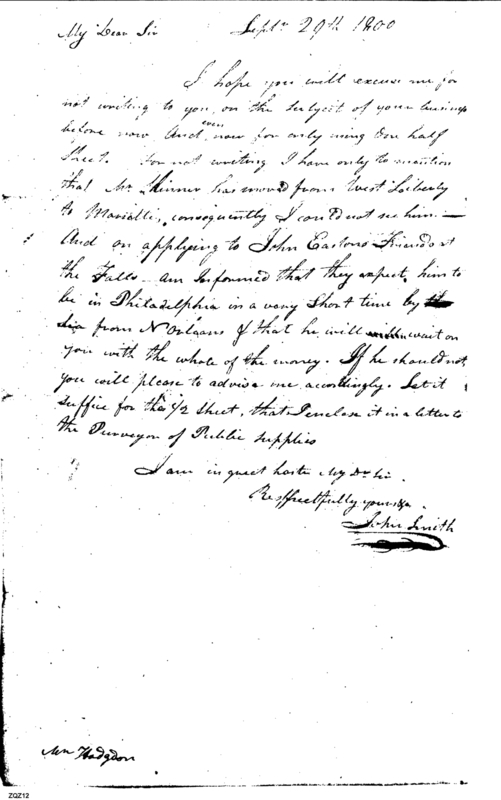 My Dear Sir Septr 29th 1800
I hope you will excuse me for
not writing to you on the subject of your business
before now And even now for only using One half
Sheet. For not writing I have only to mention
that Mr Skinner has moved from West Liberty
to Marietta, consequently I could not see him —
And on applying to John Eastons Friends at
the Falls am Informed that they expect him to
be in Philadelphia in a very Short time by
Sea from N Orleans & that he will wait on
you with the whole of the money. If he should not
you will please to advise me accordingly. Let it
Suffice for the 1/2 Sheet, that I enclose it in a letter to
the Purveyor of Public Supplies
I am in great haste My Dr Sir
Respectfully yours &c
John Smith
Mr Hodgdon
ZQZ12